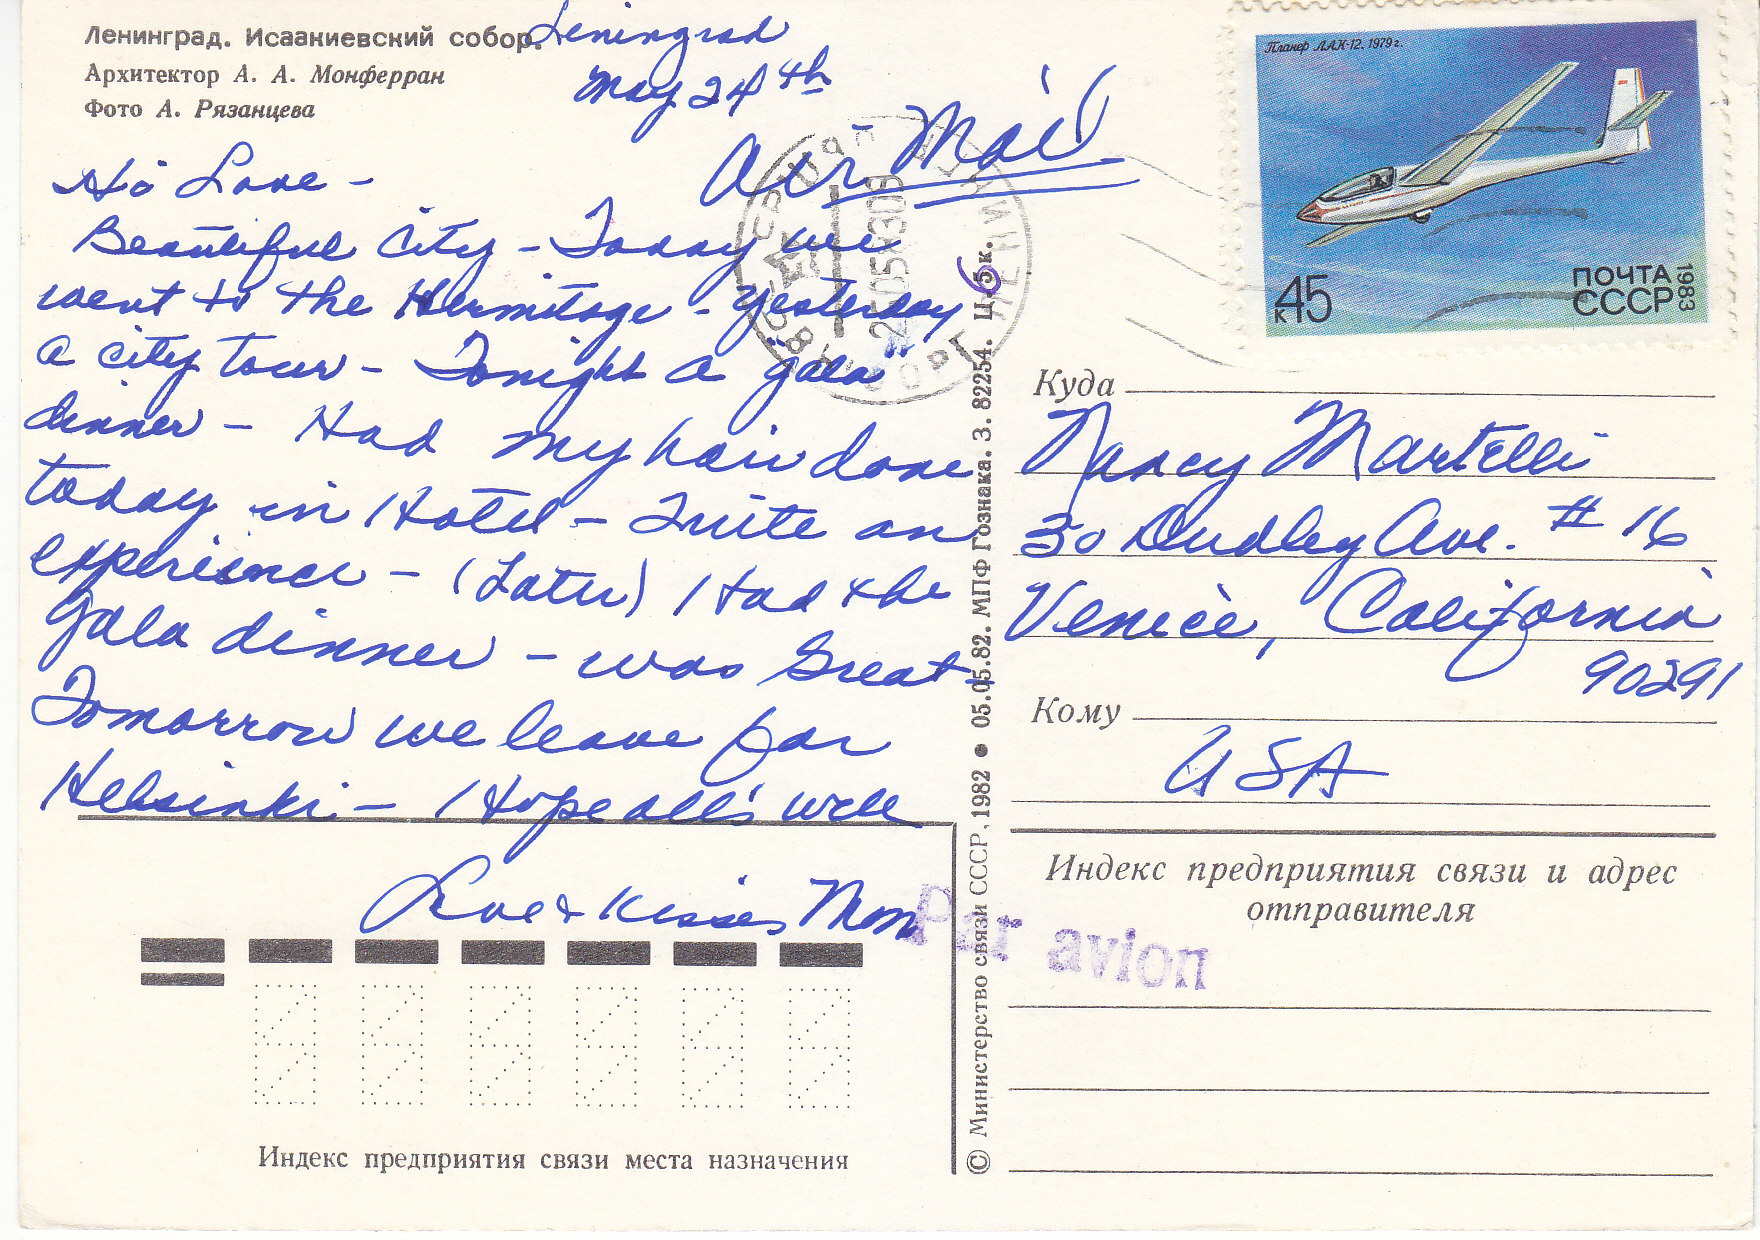 Ленинград. Исаакиевский собор.
Архитектор А. А. Монферран
Фото А. Рязанцева
Leningrad
May 24th
Air Mail
Hi Love -
Beautiful City - Today we
went to the Hermitage - yesterday
a city tour - Tonight a "gala"
dinner - Had my hair done
today in Hotel - Quite an
experience - (Later) Had the
gala dinner - was Great -
Tomorrow we leave for
Helsinki - Hope all's well
Love & Kisses Mom
Индекс предприятия связи места назначения
© Министерство связи СССР, 1982 ● 05.05.82. МПФ Гознака. З. 82254. Ц. 6 к.
Планер ЛАК-12. 1979 г.
к45
ПОЧТА
СССР
1983
Куда
Nancy Martelli
30 Dudley Ave. # 16
Venice, California
90291
Кому
USA
Индекс предприятия связи и адрес
отправителя
Par avion